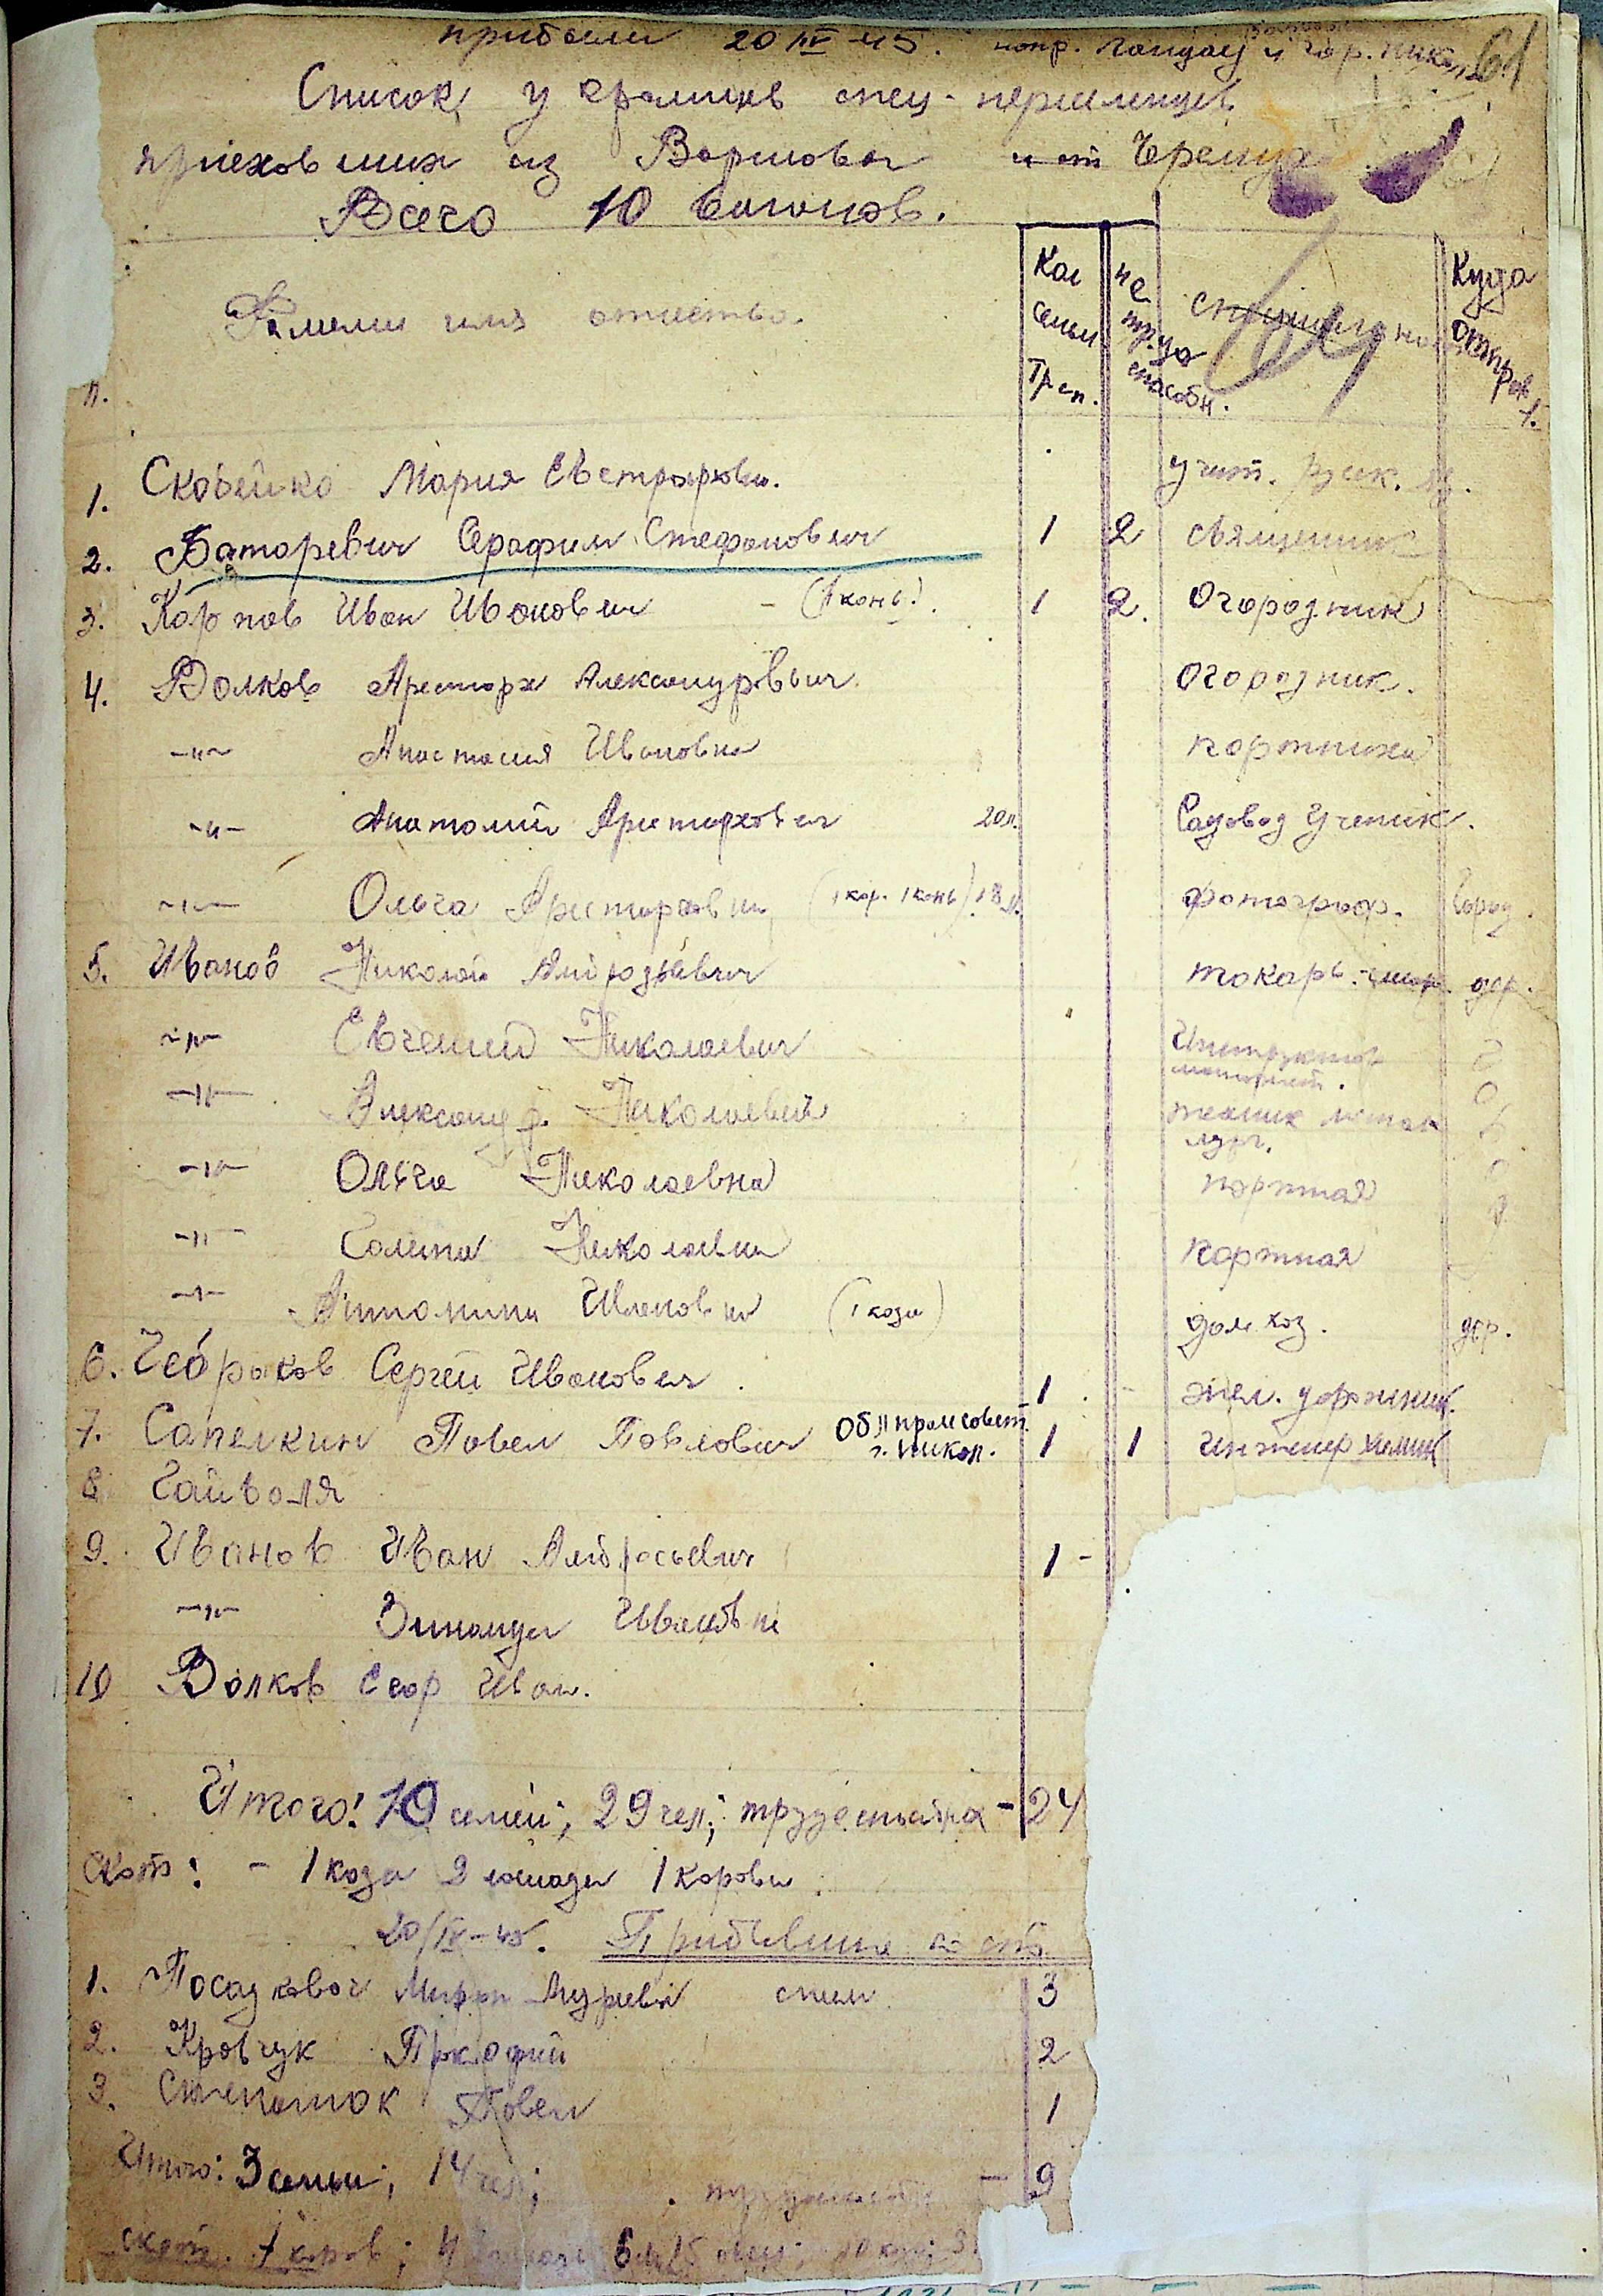 прибыли 20/IV-45. напр. гор.
Список украинцев спец-переселенцев
приеховших из Варшовы и от
Всего 10 вагонов.
Фамели имя отчество.
Кол семьи Трсп.
не трудо способн.
специальность
Куда отпровл.
1. Скобейко Мария Евстрафовн. учит. руск. яз.
2. Баторевич Серафим Стефанович 1 2 священник
3. Карпов Иван Иванович - (1 конь). 1 2. Огородник
4. Волков Аристарх Александрович огородник.
-"- Анастасия Ивановна портниха
-"- Анатолий Аристархович 20л. Садовод Ученик.
-"- Ольга Аристарховна (1 кор. 1 конь) 18л. фотограф. Город.
5. Иванов Николай Амброзьевич токарь. дер.
-"- Евгений Николаевич
-"- Александр Николаевич техник металлург.
-"- Ольга Николаевна портная
-"- Галина Николаевна портная
-"- Антонина Ивановна (1 коза) дом хоз. дер.
6. Чебраков Сергей Иванович. 1 - жел. дорожник.
7. Сапелкин Павел Павлович Облпромсовет г. Никол. 1 1 инженер химик
8 Гайволя
9. Иванов Иван Амбросьевич 1 -
-"- Зинаида Ивановна
10 Волков Егор Иван.
Итого: 10 семей; 29 чел; трудоспособных - 24
Скот: - 1 коза 2 лошади 1 корова
20/IV-45. Прибывшие
1. Посадковач 3
2. Кровчук 2
3. Степанюк Повел 1
Итого: 3 семьи; 14 чел; - 9
скот. 7 коров;